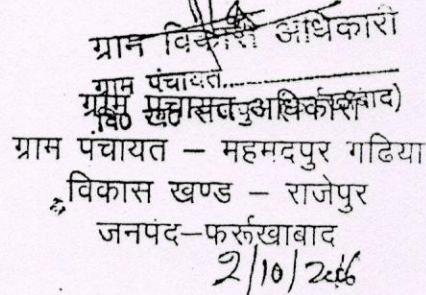 ग्राम विकास अधिकारी
ग्राम पंचायत...............
ग्राम पंचायत अधिकारी
ग्राम पंचायत – महमदपुर गढिया
विकास खण्ड – राजेपुर
जनपद–फर्रूखाबाद
2/10/2006